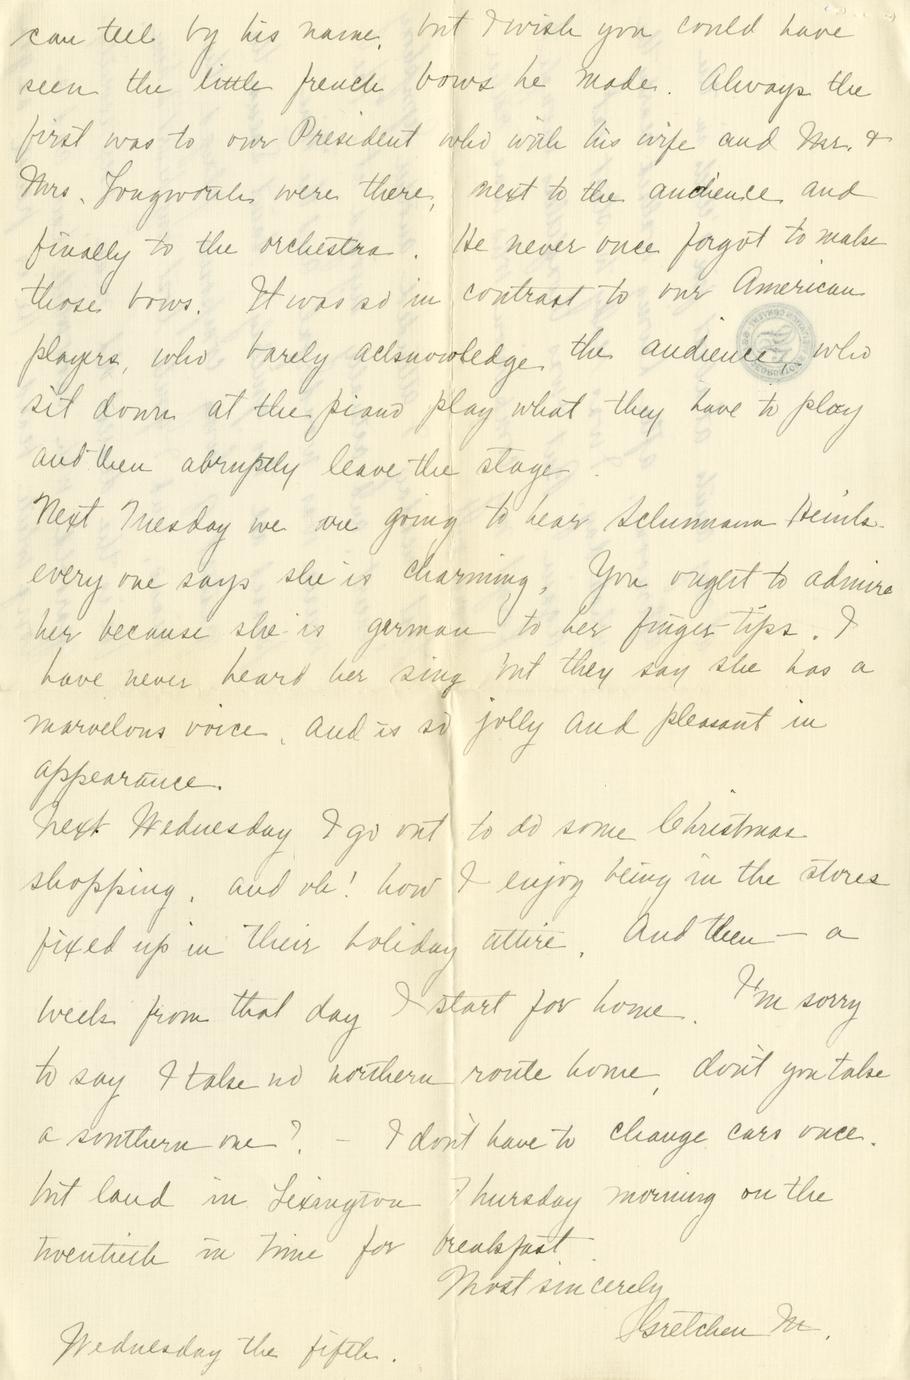 can tell by his name, but I wish you could have
seen the little french bows he made. Always the
first was to our President who with his wife and Mr. &
Mrs. Longworth were there, next to the audience and
finally to the orchestra. He never once forgot to make
those bows. It was so in contrast to our American
players, who barely acknowledge the audience, who
sit down at the piano play what they have to play
and then abruptly leave the stage.
Next Tuesday we are going to hear Schumann Heink-
every one says she is charming. You ought to admire
her because she is german to her finger tips. I
have never heard her sing but they say she has a
marvelous voice, and is so jolly and pleasant in
appearance.
Next Wednesday I go out to do some Christmas
shopping, and oh! how I enjoy being in the stores
fixed up in their holiday attire. And then — a
week from that day I start for home. I'm sorry
to say I take no northern route home, don't you take
a southern one? - I don't have to change cars once.
but land in Lexington Thursday morning on the
twentieth in time for breakfast
Most sincerely
Gretchen M.
Wednesday the fifth.